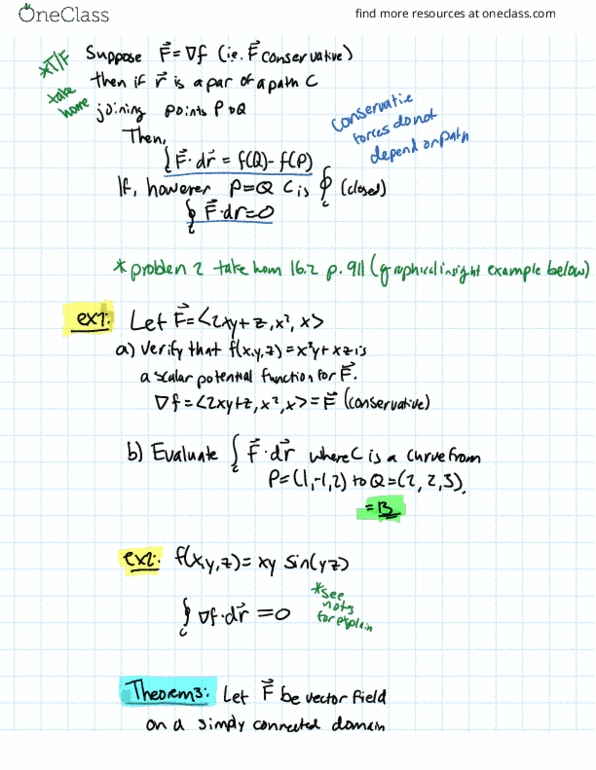 OneClass
find more resources at oneclass.com
*T/F
take
home
Suppose F⃗ = ∇f (i.e. F⃗ conservative)
then if r⃗ is a par of a path C
joining points P to Q
Then,
∫ F⃗·dr⃗ = f(Q)-f(P)
c
conservative
forces do not
depend on path
If, however P=Q C is ∮ (closed)
c
∮ F⃗·dr=0
c
*problem 2 take hom 16.2 p. 911 (graphical insight example below)
ex1: Let F⃗=<2xy+z, x², x>
a) Verify that f(x,y,z)=x²y+xz is
a scalar potential function for F⃗.
∇f=<2xy+z, x², x>=F⃗ (conservative)
b) Evaluate ∫ F⃗·dr⃗ where C is a curve from
c
P=(1,-1,2) to Q=(2,2,3).
=13
ex2: f(x,y,z)=xy sin(yz)
∮ ∇f·dr⃗ =0
c
*see
nots
for explain
Theorem3: Let F⃗ be vector field
on a simply connected domain